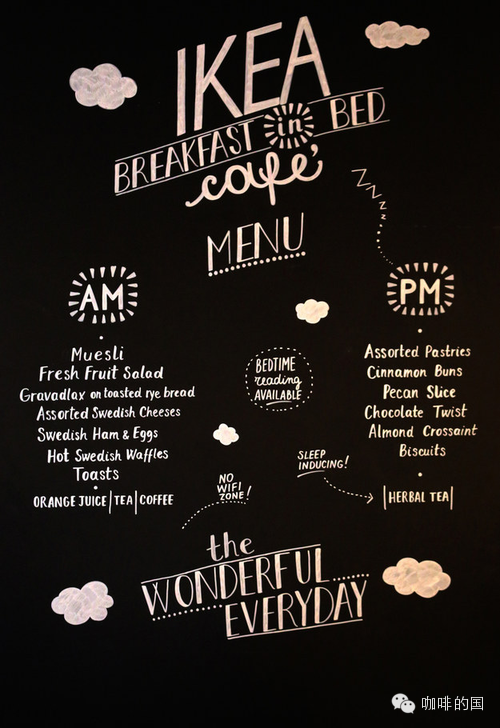 IKEA
BREAKFAST in BED
café
MENU
ZZZZZ
AM
Muesli
Fresh Fruit Salad
Gravadlax on toasted rye bread
Assorted Swedish Cheeses
Swedish Ham & Eggs
Hot Swedish Waffles
Toasts
ORANGE JUICE | TEA | COFFEE
BEDTIME
reading
AVAILABLE
NO
WIFI
ZONE!
SLEEP
INDUCING!
PM
Assorted Pastries
Cinnamon Buns
Pecan Slice
Chocolate Twist
Almond Crossaint
Biscuits
|HERBAL TEA|
the
WONDERFUL
EVERYDAY
咖啡的国